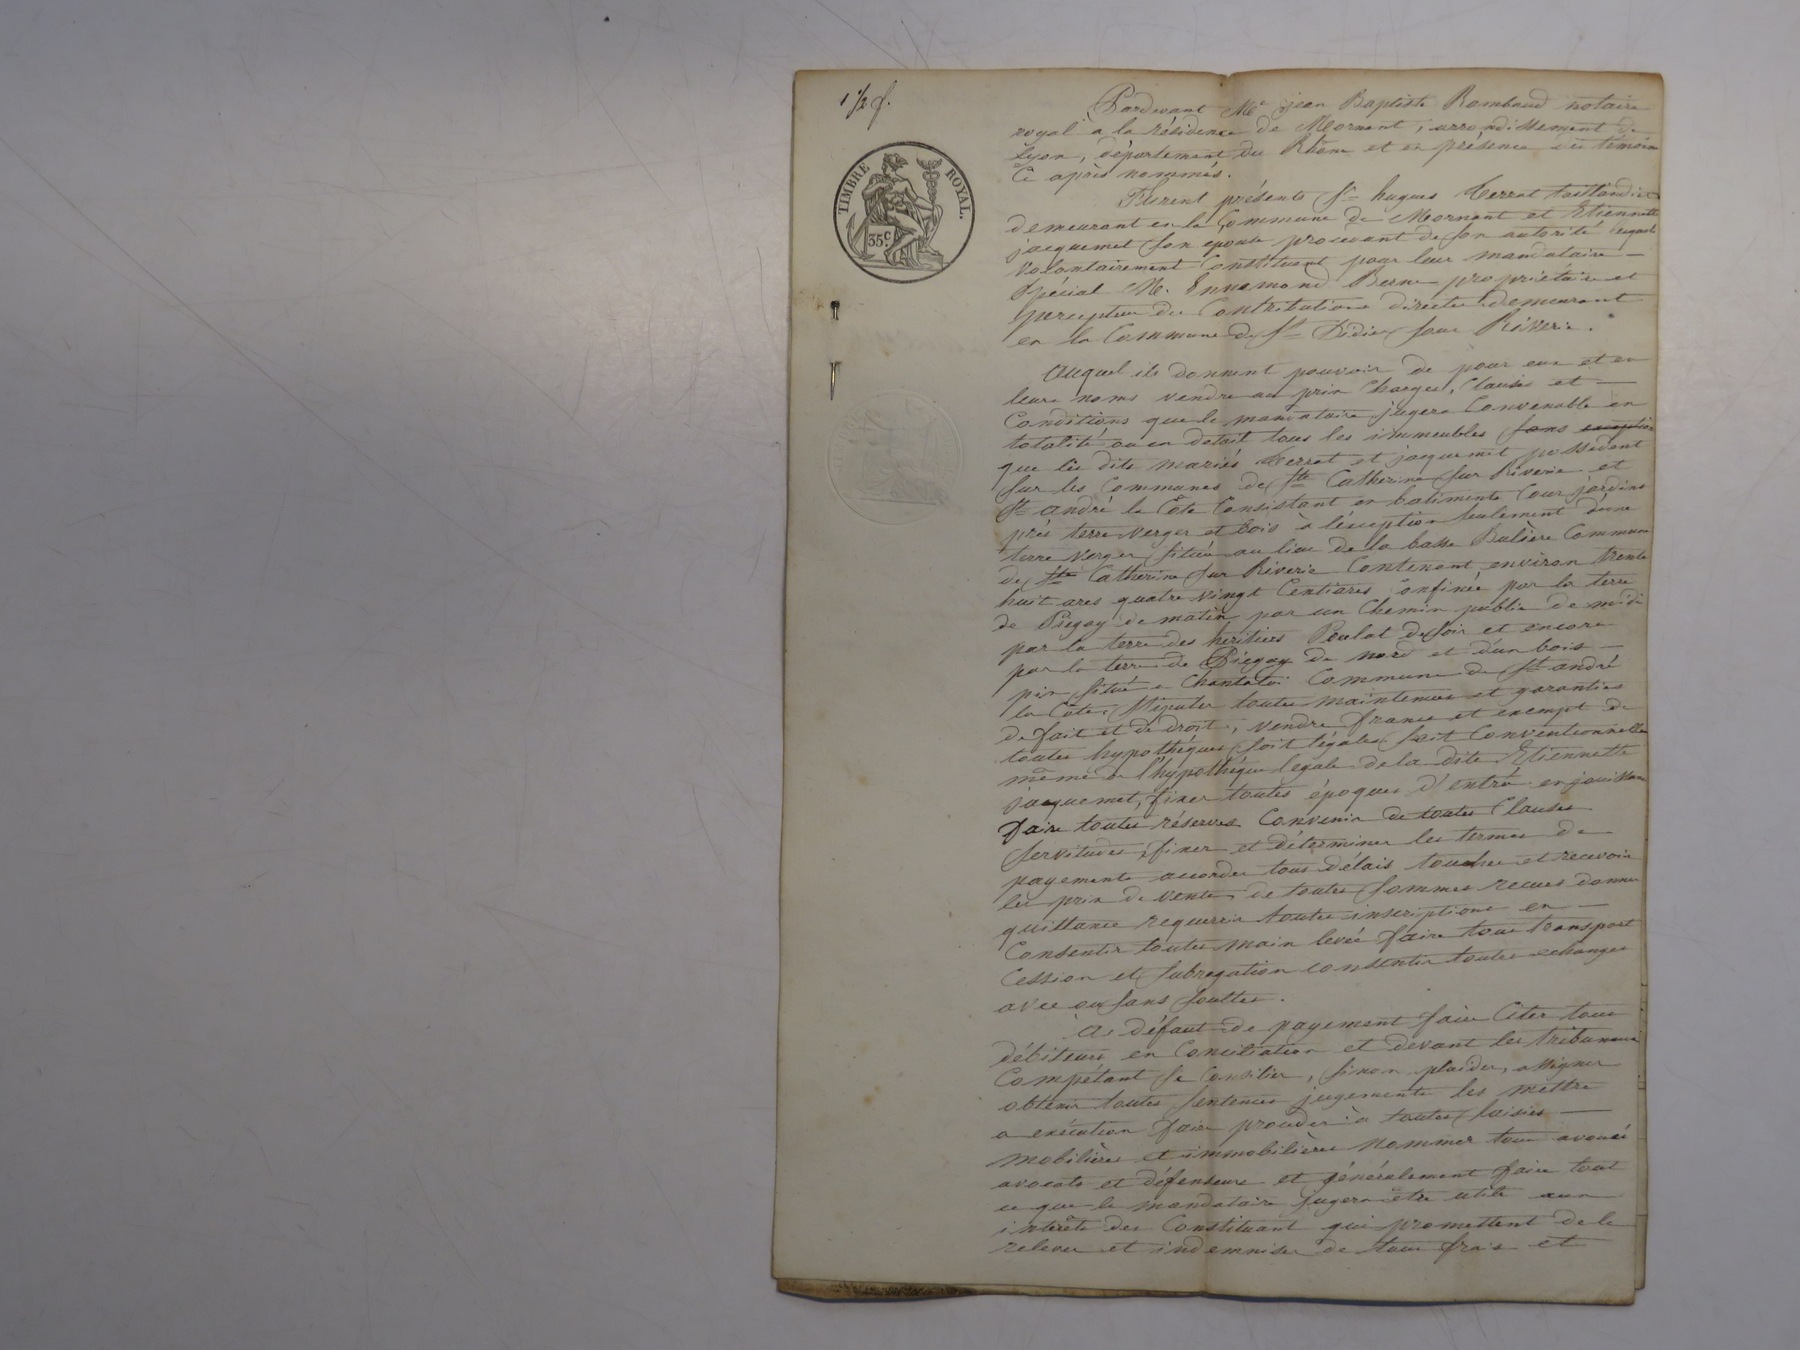 1 1/2 f.
TIMBRE ROYAL.
35c.
Pardevant Me jean Baptiste Rambaud notaire
royal a la résidence de Mornant, arrondissement de
Lyon, département du Rhône et en présence des témoins
Ci après nommés.
Furent présents Sr hugues Terrat taillandier
demeurant en la Commune de Mornant et Etiennette
jacquemet son epouse procedant de son autorité lesquels
volontairement Constituent pour leur mandataire —
Spécial M. Ennemond Berne propriétaire et
percepteur des Contributions directes demeurant
en la Commune de St Didier sous Riverie.
Auquel ils donnent pouvoir de pour eux et en
leurs noms vendre aux prix Charges, Clauses et —
Conditions que le mandataire jugera Convenable en
totalité ou en detail tous les immeubles sans exception
que les dits mariés Terrat et jacquemet possedent
sur les Communes de Ste Catherine sur Riverie et
St andré la Côte Consistant en batiments Cour jardins
près terre verger et bois à l'éxception seulement d'une
terre verger située au lieu de la basse Bulière Commune
de Ste Catherine sur Riverie Contenant environ trente
huit ares quatre vingt Centiares Confinée par la terre
de Piegay de matin par un Chemin public de midi
par la terre des heritiers Poulat de soir et encore
par la terre de Piégay de nord et d'un bois —
pin situé a Commune de St andré
la Côte; Stipuler toutes maintenues et garanties
de fait et de droit; vendre franc et exempt de
toutes hypothéques soit légales soit Conventionnelles
même de l'hypothéque legale de la dite Etiennette
jacquemet, fixer toutes époques d'entré en jouissance
faire toutes réserves Convenir de toutes Clauses
servitudes, fixer et déterminer les termes de
payements accorder tous délais toucher et recevoir
les prix de vente; de toutes sommes recues donner
quittance requerrir toutes inscriptions en —
Consentir toutes main levée faire tous transport
Cession et subrogation consentir toutes echanges
avec ou sans soultes.
A défaut de payement faire Citer tous
débiteurs en Conciliation et devant les tribunaux
Compétant se Concilier, sinon plaider, assigner
obtenir toutes sentences jugements les mettre
a exécution faire proceder à toutes saisies —
mobilières et immobilières nommer tous avoués
avocats et défenseurs et généralement faire tout
ce que le mandataire jugera être utile aux
intérêts des Constituant qui promettent de le
relever et indemniser de tous frais et